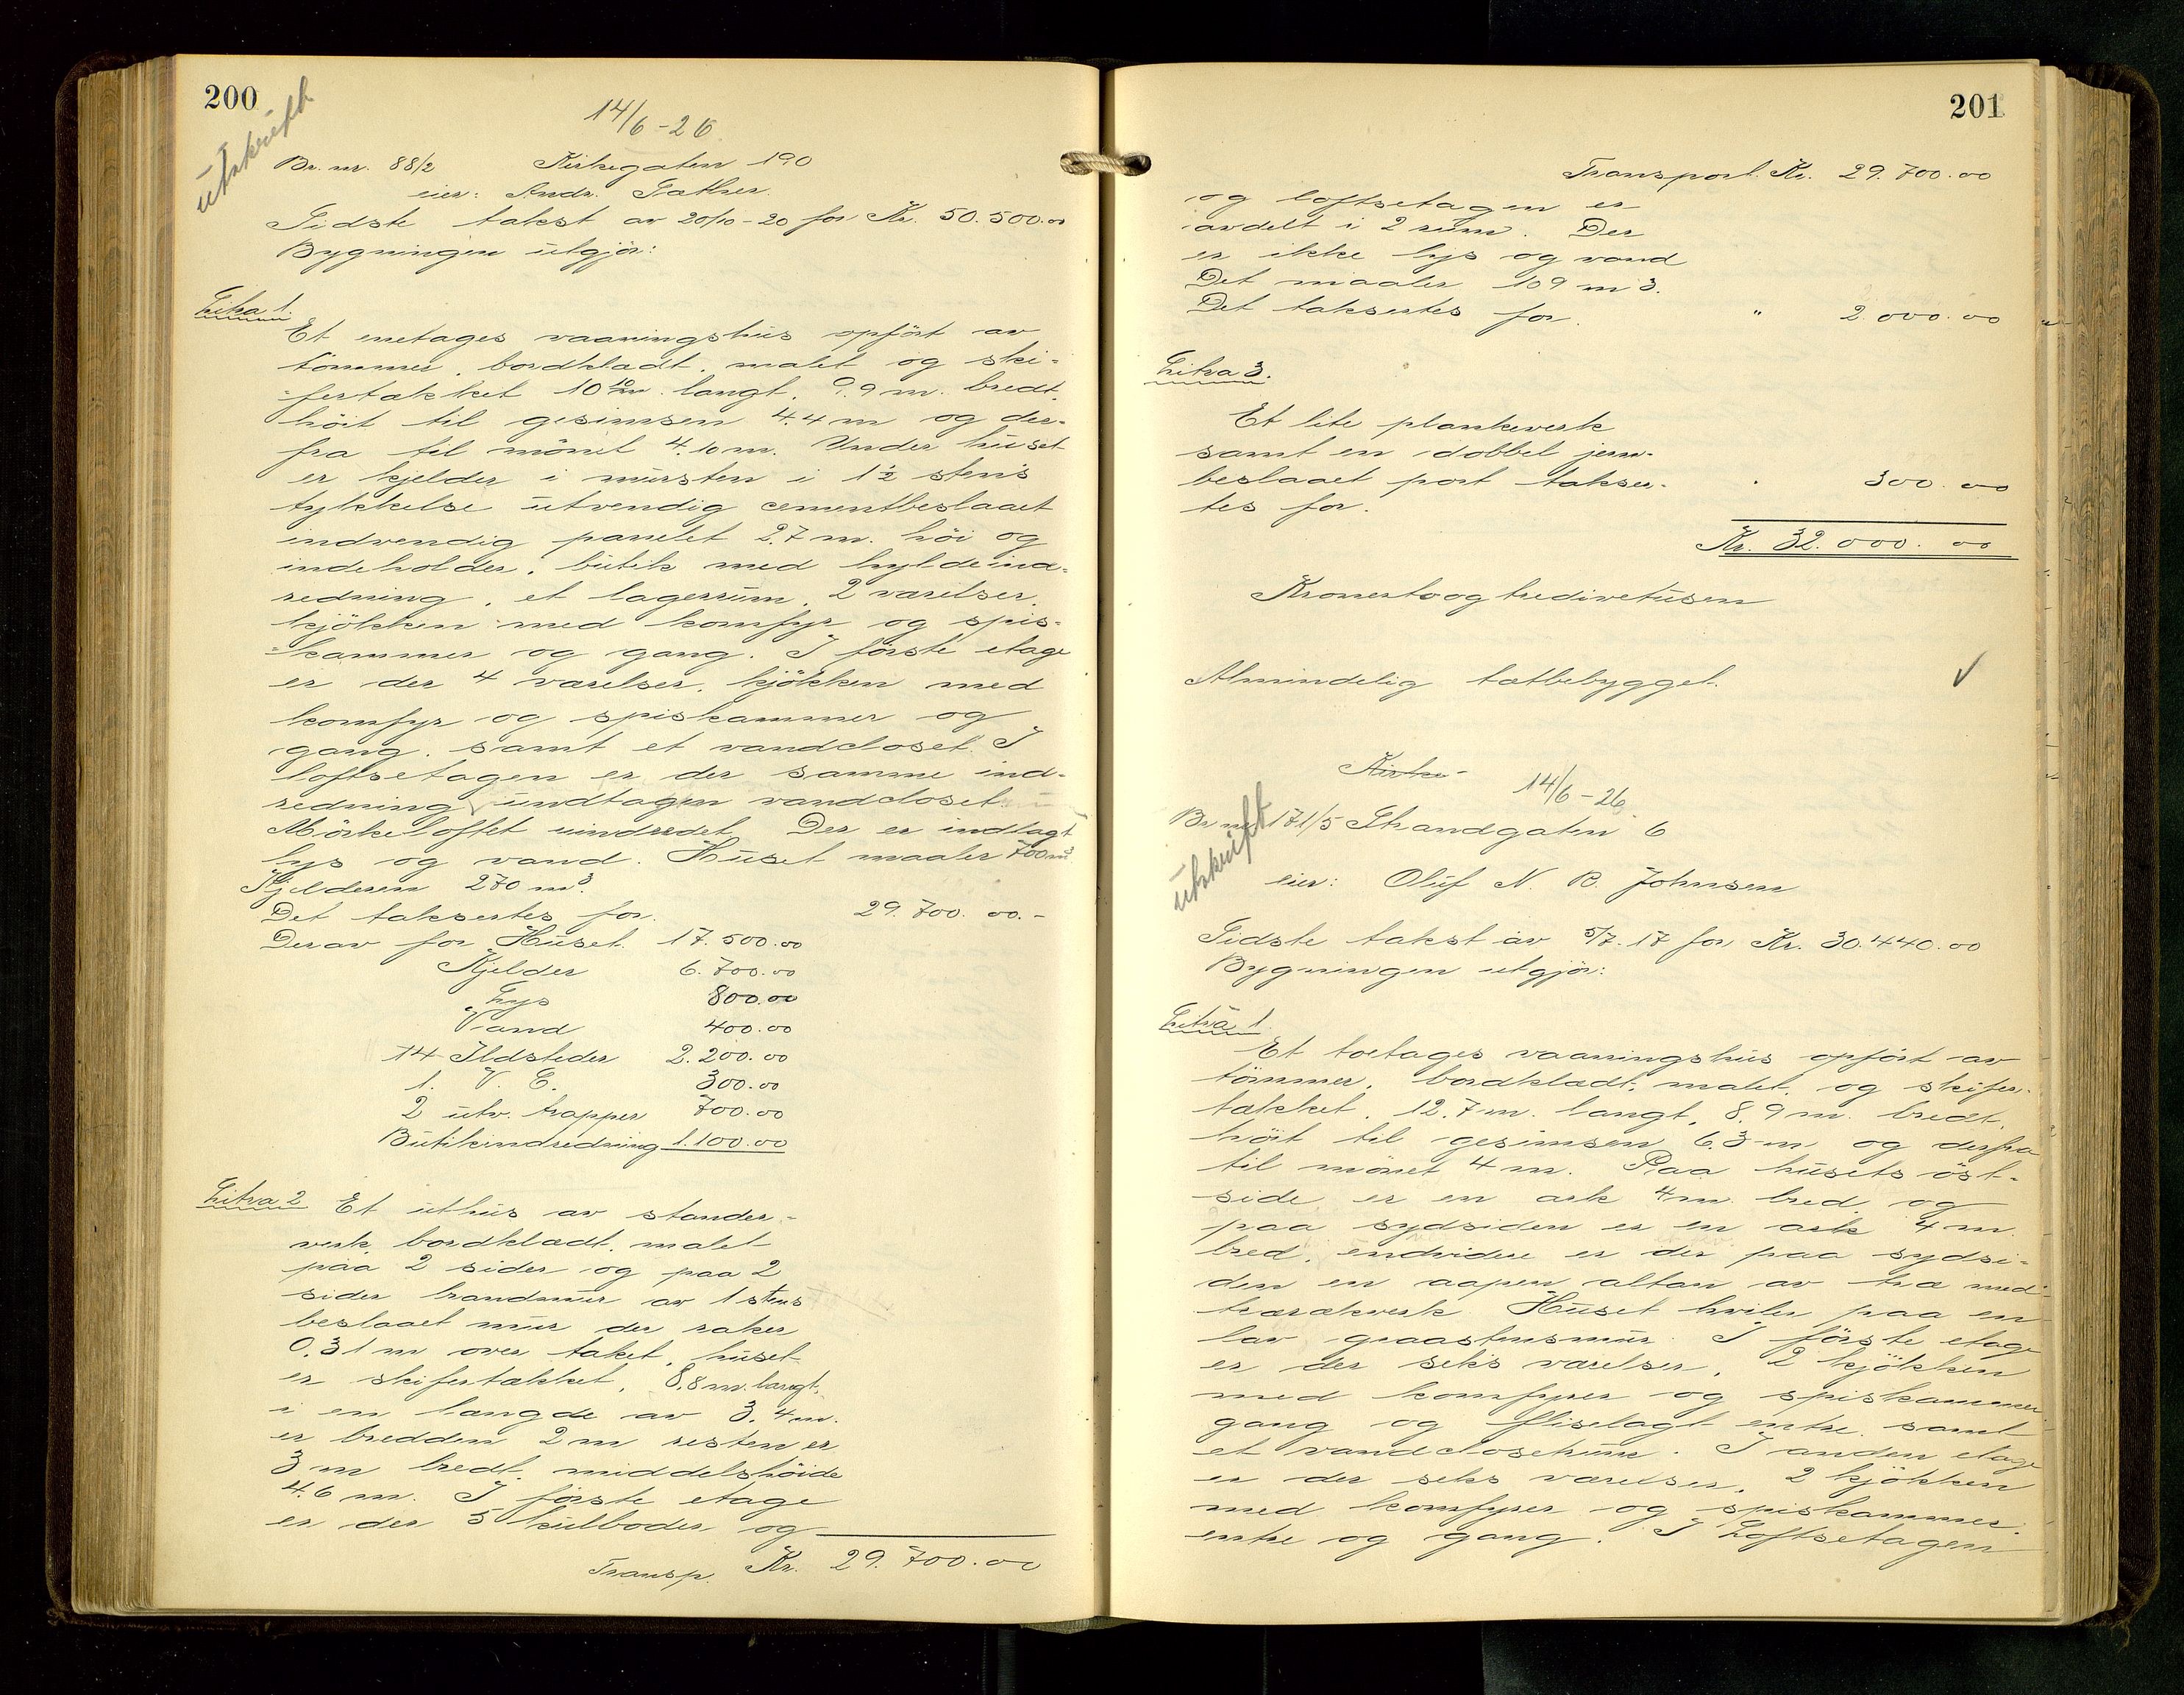 200
utskrift
14/6-26
Br. nr. 88/2 Kirkegaten 190
eier: Andr. Gather.
Sidste takst av 20/10-20 for Kr. 50.500.00
Bygningen utgjør:
Litra 1.
Et enetages vaaningshus opført av
tømmer, bordklædt, malet og ski=
=fertækket 10.10 m. langt, 9.9 m. bredt,
høit til gesimsen 4.4 m og der-
fra til mønet 4.10 m. Under huset
er kjelder i mursten i 1½ stens
tykkelse utvendig cementbeslaaet
indvendig panelet 2.7 m. høi og
indeholder, butik med hyldeind=
redning, et lagerrum, 2 værelser,
kjøkken med komfyr og spis=
=kammer og gang. I første etage
er der 4 værelser, kjøkken med
komfyr og spiskammer og
gang, samt et vandcloset. I
loftsetagen er der samme ind-
redning undtagen vandcloset.
Mørkeloftet uindredet. Der er indlagt
lys og vand. Huset maaler 700 m³
Kjelderen 270 m³.
Det taksertes for. 29.700.00.-
Derav for Huset. 17.500.00
Kjelder 6.700.00
Lys 800.00
Vand 400.00
14 Ildsteder 2.200.00
1. V. C. 300.00
2 utv. trapper 700.00
Butikindredning 1.100.00
Litra 2 Et uthus av stander-
verk, bordklædt, malet
paa 2 sider og paa 2
sider brandmur av 1 stens
beslaaet mur der raker
0.31 m over taket, huset
er skifertækket, 8.8 m. langt,
i en længde av 3.4 m.
er bredden 2 m resten er
3 m bredt, middelshøide
4.6 m. I første etage
er der 5 kulboder og
Transp. Kr. 29.700.00
201
Transport. Kr. 29.700.00
og loftsetagen er
avdelt i 2 rum. Der
er ikke lys og vand
Det maaler 109 m3.
Det taksertes for. " 2.000.00
Litra 3.
Et lite plankeverk
samt en dobbel jern-
beslaaet port takser-
tes for. 300.00
Kr. 32.000.00
Kronertoogtredivetusen
Almindelig tætbebygget. ✓
Kirke-
14/6-26
utskrift
Br nr 171/5 Strandgaten 6
eier: Oluf N. B. Johnsen
Sidste takst av 5/7.17 for Kr. 30.440.00
Bygningen utgjør:
Litra 1.
Et toetages vaaningshus opført av
tømmer, bordklædt, malet, og skifer-
tækket, 12.7 m. langt, 8.9 m. bredt,
høit til gesimsen 6.3 m. og derfra
til mønet 4 m. Paa husets øst-
side er en ark 4 m. bred, og
paa sydsiden er en ark 4 m.
bred, endvidere er der paa sydsi-
den en aapen altan av træ med
trærækverk. Huset hviler paa en
lav graastensmur. I første etage
er der seks værelser, 2 kjøkken
med komfyrer og spiskammer
gang og fliselagt entre samt
et vandclosetrum. I anden etage
er der seks værelser, 2 kjøkken
med komfyrer og spiskammer.
entre og gang. I Loftsetagen